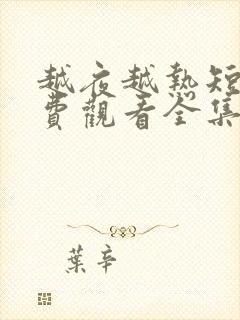 越夜越熱短
費觀看全集
葉辛